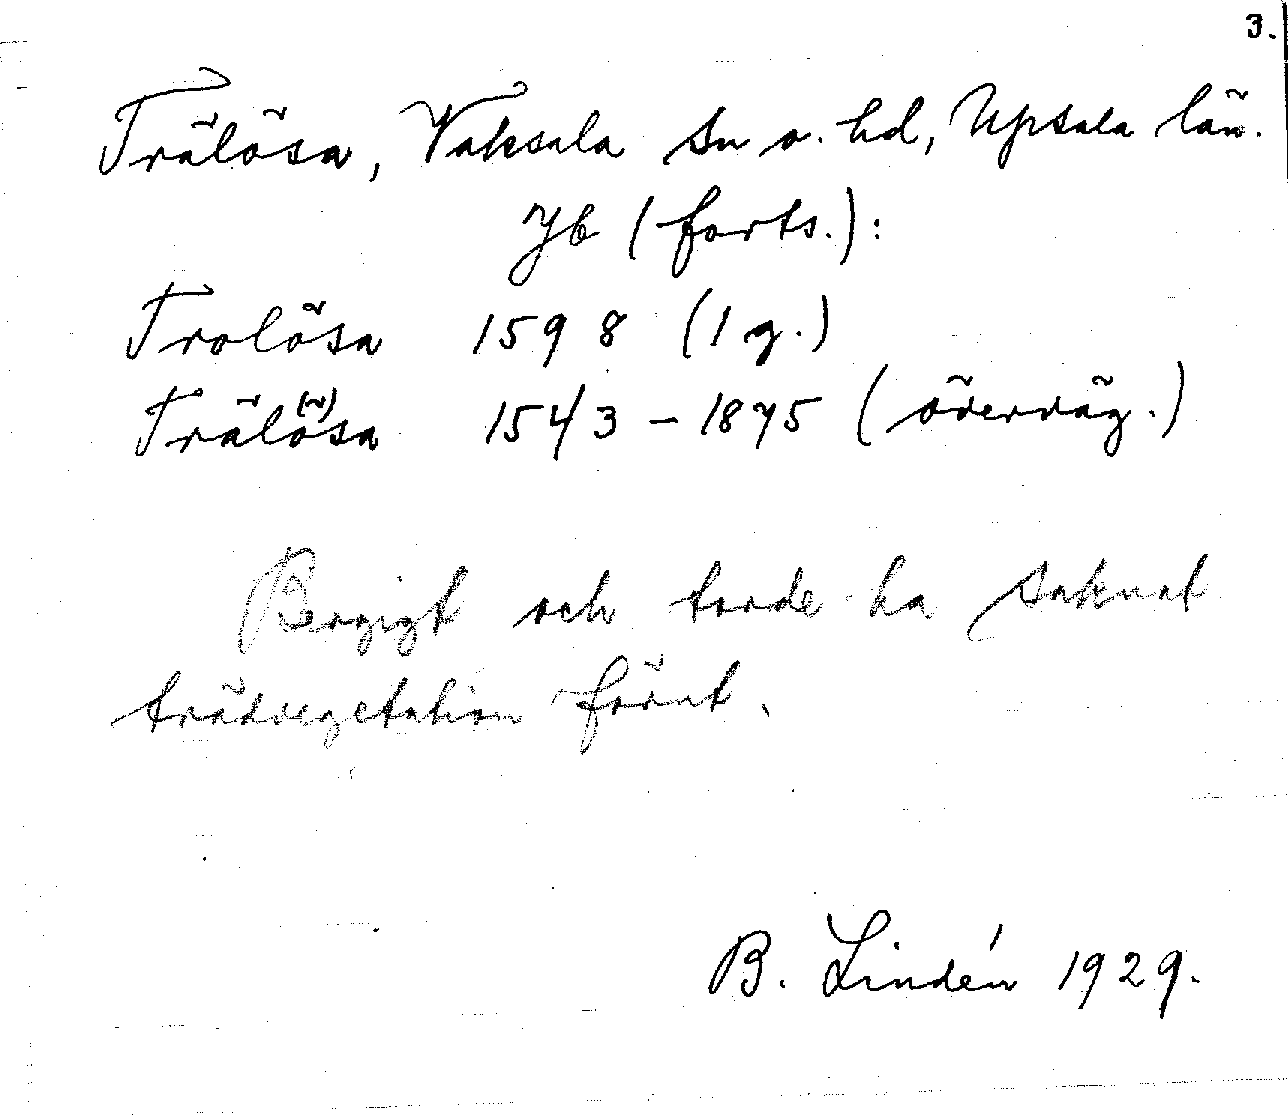 3.
Trälösa, Vaksala sn o. hd, Upsala län.
Jb (forts.):
Trolösa 1598 (1 g.)
Trälö(̈)sa 1543 – 1875 (överväg.)
Bergigt och torde ha saknat
trädvegetation förut.
B. Lindén 1929.